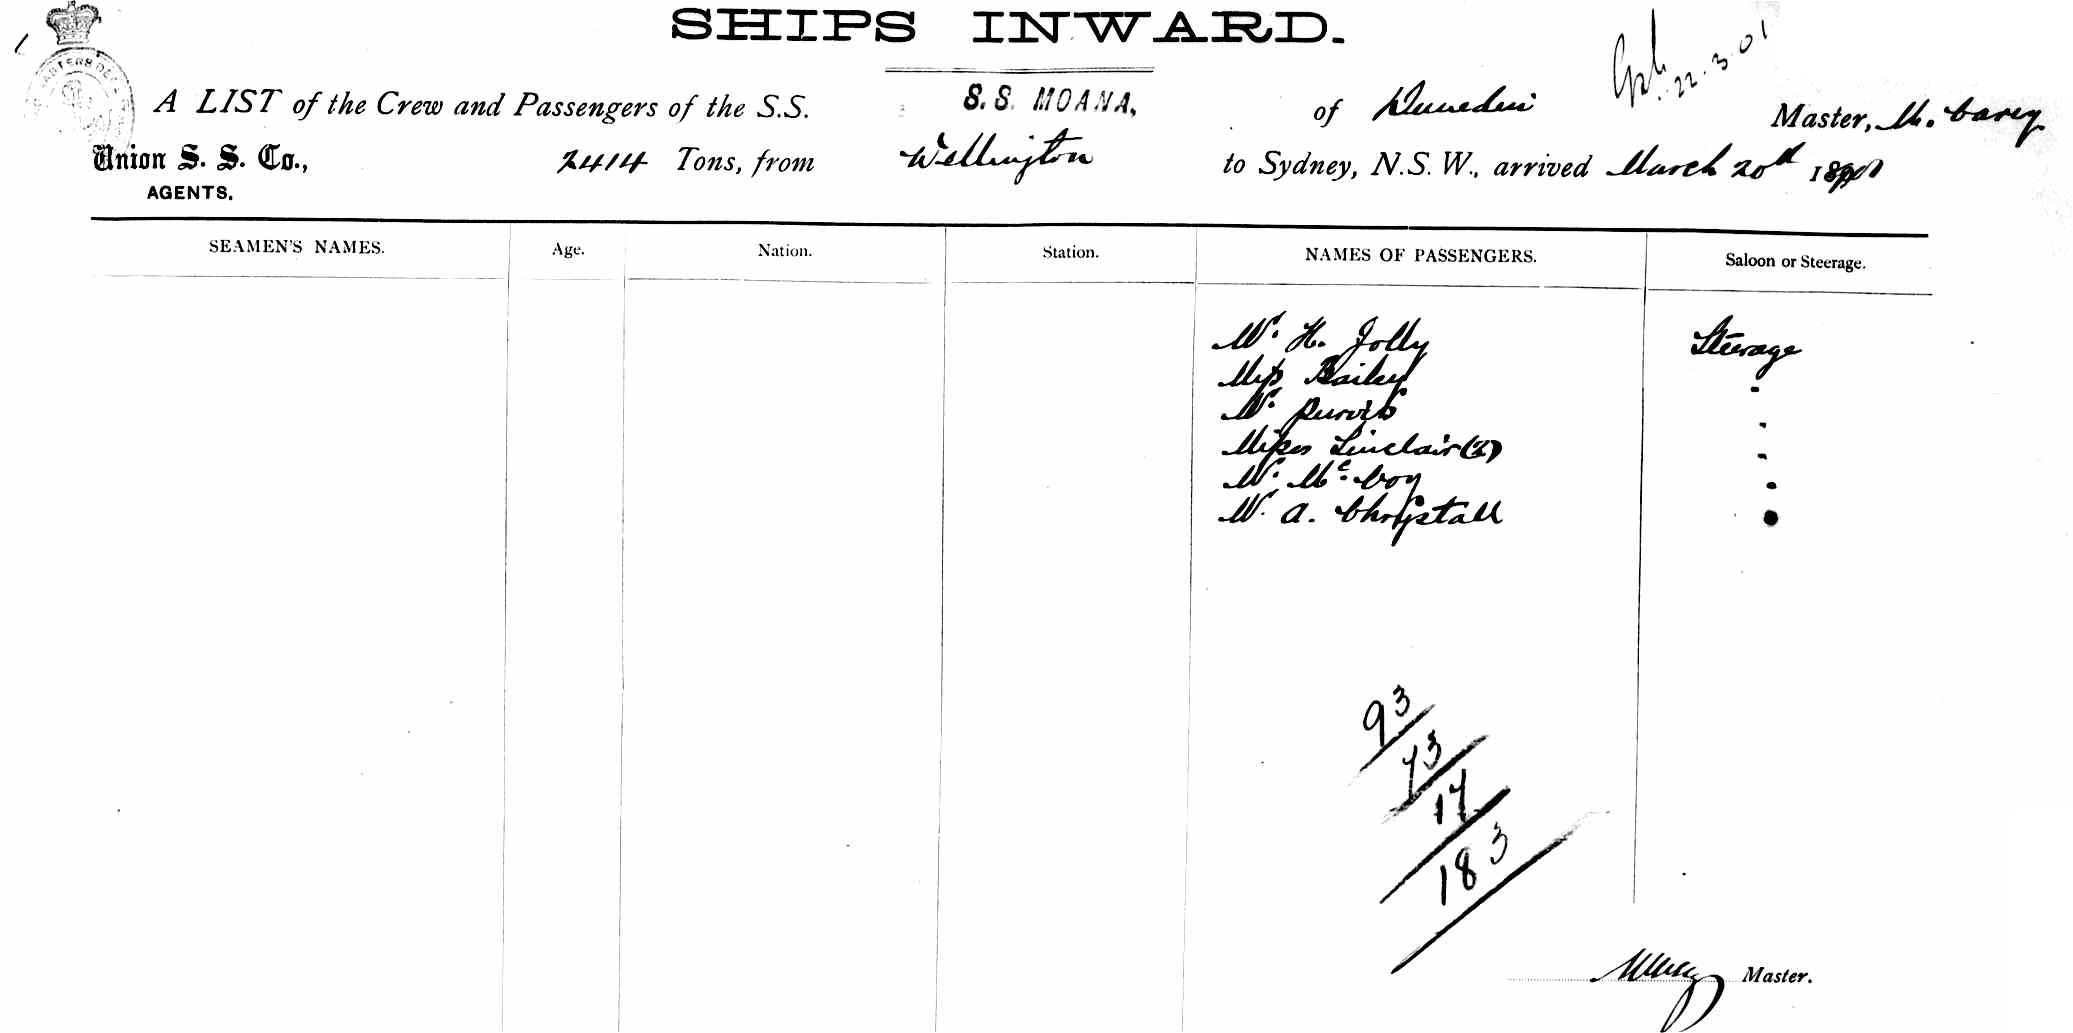 SHIPS INWARD.
22.3.01
A LIST of the Crew and Passengers of the S.S. S. S. MOANA, of Dunedin Master, M. Carey
Union S. S. Co., 2414 Tons, from Wellington to Sydney, N.S.W., arrived March 20th 1901
AGENTS.
SEAMEN'S NAMES. Age. Nation. Station. NAMES OF PASSENGERS. Saloon or Steerage.
Mr. H. Jolly Steerage
Miss Bailey "
Mr. Purvis "
Misses Sinclair (2) "
Mr. McCoy "
Mr. A. Chrystall "
93
73
17
183
Master.